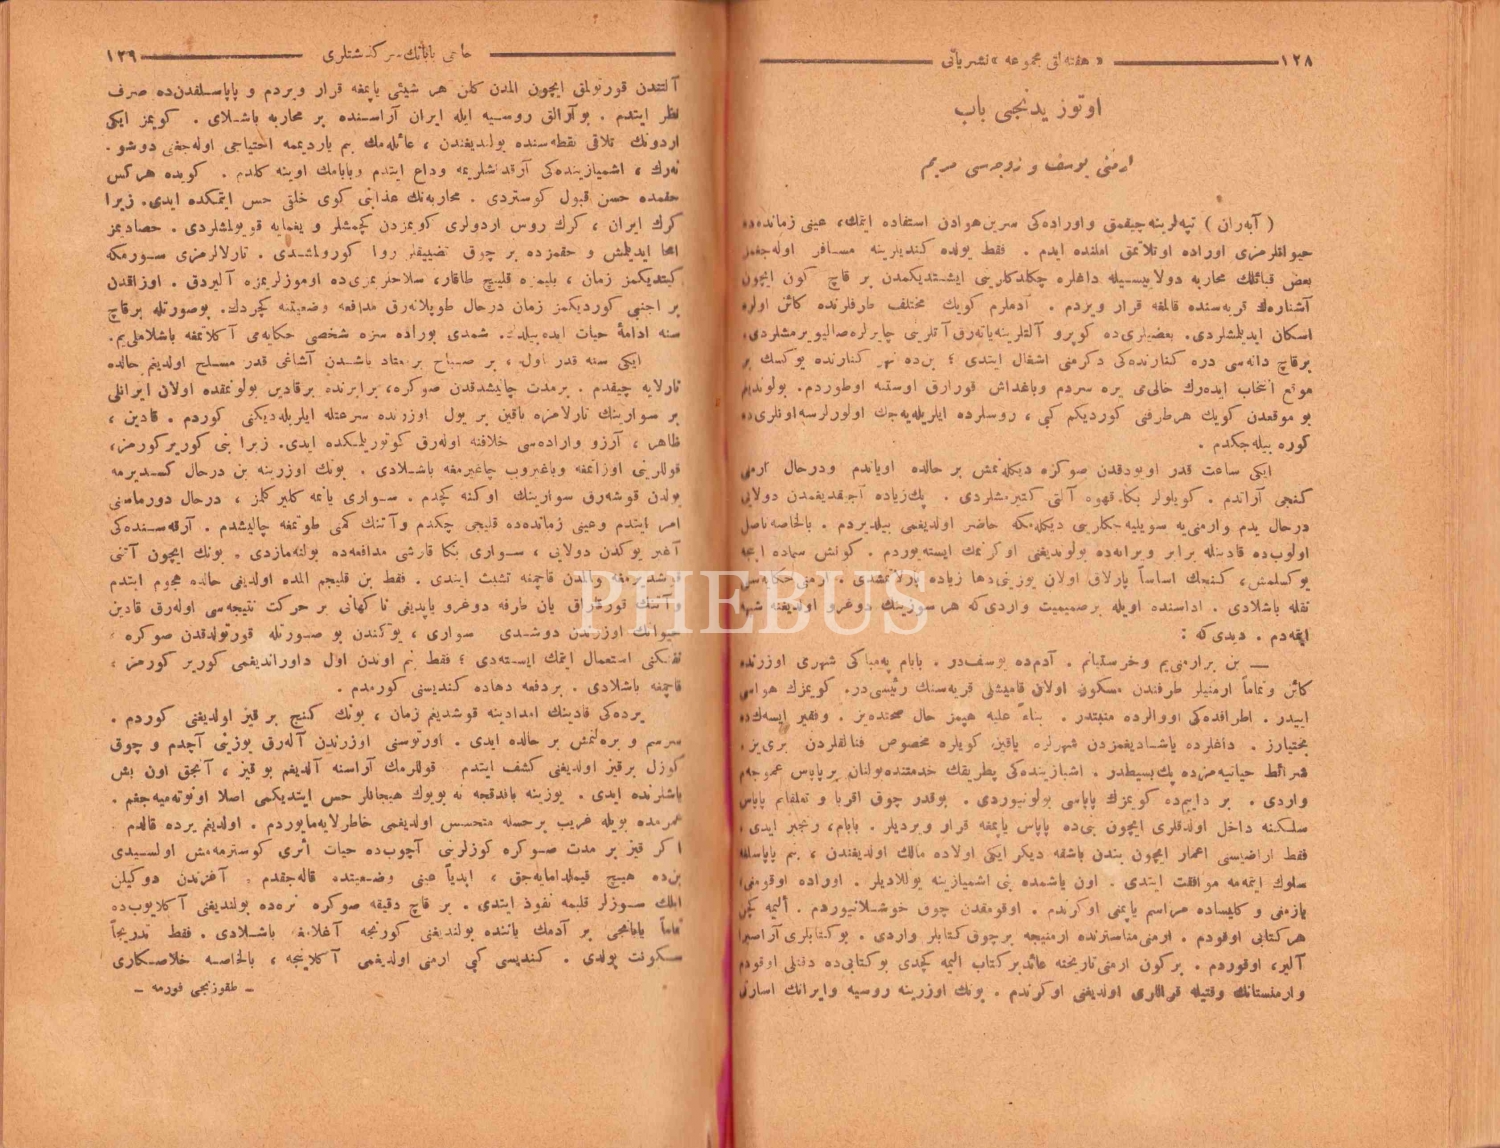 ١٢٨ «هفته‌لق مجموعه» نشریاتی
اوتوز یدنجی باب
ارمنی یوسف و زوجه‌سی مریم
( آبه‌ران ) تپه‌لرینه چیقمق و اوراده‌کی سرین هوادن استفاده ایتمك، عینی زمانده‌ده
حیوانلرمزی اوراده اوتلاتمق املنده ایدم . فقط یولده کندیلرینه مسافر اوله‌جغمز
بعض قبائلك محاربه دولاییسیله داغلره چکلدکلرینی ایشتدیکمدن بر قاچ کون ایچون
آشتارك قریه‌سنده قالمغه قرار ویردم . آدملرم کویك مختلف طرفلرنده کائن اولره
اسکان ایدیلمشلردی. بعضیلری‌ده کوپرو آلتلرینه یاته‌رق آتلرینی چایرلره صالیویرمشلردی.
برقاچ دانه‌سی دره کنارنده‌کی دکرمنی اشغال ایتدی ؛ بن‌ده نهر کنارنده یوکسك بر
موقع انتخاب ایده‌رك خالی‌می یره سردم وباغداش قورارق اوستنه اوطوردم. بولوندیغم
بو موقعدن کویك هر طرفنی کوردیکم کبی ، روسلرده ایلریله‌یه‌جك اولورلرسه اونلری‌ده
کوره بیله‌جکدم .
ایکی ساعت قدر اویودقدن صوکره دیکلنمش بر حالده اویاندم ودرحال ارمنی
کنجی آراندم . کویلولر بکا قهوه آلتی کتیرمشلردی . پك‌زیاده آجیقدیغمدن دولایی
درحال یدم وارمنی‌یه سویلیه‌جکلرینی دیکله‌مکه حاضر اولدیغمی بیلدیردم . بالخاصه ناصل
اولوب‌ده قادینله برابر ویرانه‌ده بولوندیغنی اوکرنمك ایسته‌یوردم . کونش سماده ایجه
یوکسلمش، کنجك اساساً پارلاق اولان یوزینی‌دها زیاده پارلاتمشدی . ارمنی حکایه‌سنی
نقله باشلادی . اداسنده اویله برصمیمیت واردی‌که هر سوزینك دوغرو اولدیغنه شبهه
ایتمه‌دم . دیدی‌که :
— بن بر ارمنی‌یم وخرستیانم . آدم‌ده یوسف‌در . بابام په‌مباکی شهری اوزرنده
کائن وتماماً ارمنیلر طرفندن مسکون اولان قامیشلی قریه‌سنك رئیسی‌در. کویمزك هواسی
اییدر . اطرافده‌کی اووالرده منبتدر . بناءً علیه هپمز حال صحتده‌یز . وفقیر ایسه‌ك‌ده
بختیارز . داغلرده یاشادیغمزدن شهرلره یاقین کویلره مخصوص فنالقلردن بری‌یز.
شرائط حیاتیه‌مزده پك‌بسیطدر . اشمیازینده‌کی پطریقك خدمتنده‌بولنان برپاپاس عموجه‌م
واردی . بر دایم‌ده کویمزك پاپاسی بولونیوردی . بوقدر چوق اقربا و تعلقاتم پاپاس
سلکنه داخل اولدقلری ایچون بنی‌ده پاپاس یاپمغه قرار ویردیلر . بابام، رنجبر ایدی.
فقط اراضیسنی اعمار ایچون بندن باشقه دیکر ایکی اولاده مالك اولدیغندن ، بنم پاپاسلغه
سلوك ایتمه‌مه موافقت ایتدی . اون یاشمده بنی اشمیازینه یوللادیلر . اوراده اوقومغی،
یازمغی و کلیساده مراسم یاپمغی اوکرندم . اوقومقدن چوق خوشلانیوردم . ألیمه کچن
هرکتابی اوقودم . ارمنی مناسترنده ارمنیجه برچوق کتابلر واردی . بوکتابلری آراصیرا
آلیر، اوقوردم . برکون ارمنی تاریخنه عائد برکتاب الیمه کچدی بوکتابی‌ده دقتلی اوقودم
وارمنستانك وقتیله قراللری اولدیغنی اوکرندم . بونك اوزرینه روسیه وایرانك اسارتی
١٢٩ حاجی بابانك سرکذشتلری
آلتندن قورتولمق ایچون المدن کلن هر شیئی یاپمغه قرار ویردم و پاپاسلقدن‌ده صرف
نظر ایتدم . بوآرالق روسیه ایله ایران آراسنده بر محاربه باشلادی . کویمز ایکی
اردونك تلاقی نقطه‌سنده بولندیغندن ، عائله‌مك بنم یاردیممه احتیاجی اوله‌جغنی دوشو-
نه‌رك ، اشمیازینده‌کی آرقداشلریمه وداع ایتدم وبابامك اوینه کلدم . کویده هرکس
حقمده حسن قبول کوستردی . محاربه‌نك عذابنی کوی خلقی حس ایتمکده ایدی. زیرا
کرك ایران ، کرك روس اردولری کویمزدن کچمشلر و یغمایه قویولمشلردی . حصادیمز
امحا ایدیلمش و حقمزده بر چوق تضییقلر روا کورولمشدی . تارلالرمزی سورمکه
کیتدیکمز زمان ، بلیمزه قلیج طاقار، سلاحلریمزی‌ده اوموزلریمزه آلیردق . اوزاقدن
بر اجنبی کوردیکمز زمان درحال طوپلانه‌رق مدافعه وضعیتنه کچردك. بوصورتله برقاچ
سنه ادامهٔ حیات ایده‌بیلدك. شمدی بوراده سزه شخصی حکایه‌می آکلاتمغه باشلاملی‌یم.
ایکی سنه قدر اول ، بر صباح بر معتاد باشدن آشاغی قدر مسلح اولدیغم حالده
تارلایه چیقدم . برمدت چالیشدقدن صوکره، برابرنده برقادین بولونمقده اولان ایرانلی
بر سوارینك تارلامزه یاقین بر یول اوزرنده سرعتله ایلریله‌دیکنی کوردم . قادین ،
ظاهر ، آرزو واراده‌سی خلافنه اوله‌رق کوتوریلمکده ایدی. زیرا بنی کوریر کورمز،
قوللرینی اوزاتمغه وباغیروب چاغیرمغه باشلادی . بونك اوزرینه بن درحال کسدیرمه
یولدن قوشه‌رق سوارینك اوکنه کچدم . سواری یانمه کلیر کلمز ، درحال دورماسنی
امر ایتدم وعینی زمانده‌ده قلیجی چکدم وآتنك کمنی طوتمغه چالیشدم . آرقه‌سنده‌کی
آغیر یوکدن دولایی ، سواری بکا قارشی مدافعه‌ده بولنه‌مازدی . بونك ایچون آتنی
قوشدیرمغه والمدن قاچمغه تشبث ایتدی . فقط بن قلیجم المده اولدیغی حالده هجوم ایتدم
وآتنك قورقارق یان طرفه دوغرو یاپدیغی ناکهانی بر حرکت نتیجه‌سی اوله‌رق قادین
حیوانك اوزرندن دوشدی سواری ، یوکندن بو صورتله قورتولدقدن صوکره ،
تفنکنی استعمال ایتمك ایسته‌دی ؛ فقط بنم اوندن اول داوراندیغمی کوریر کورمز ،
قاچمغه باشلادی . بردفعه دهاده کندیسنی کورمدم .
یرده‌کی قادینك امدادینه قوشدیغم زمان ، بونك کنج بر قیز اولدیغنی کوردم .
سرسم و بره‌لنمش بر حالده ایدی . اورتوسنی اوزرندن آله‌رق یوزینی آچدم و چوق
کوزل برقیز اولدیغنی کشف ایتدم قوللرمك آراسنه آلدیغم بو قیز ، آنجق اون بش
یاشلرنده ایدی . یوزینه باقدقجه نه بویوك هیجانلر حس ایتدیکمی اصلا اونوته‌میه‌جغم .
عمرمده بویله غریب برحسله متحسس اولدیغمی خاطرلایه‌مایوردم . اولدیغم یرده قالدم
اکر قیز بر مدت صوکره کوزلرینی آچوب‌ده حیات اثری کوسترمه‌مش اولسیدی
بن‌ده هیچ قیملدامایه‌جق ، ابدیاً عینی وضعیتده قاله‌جقدم . آغزندن دوکیلن
ایلك سوزلر قلبمه نفوذ ایتدی . بر قاچ دقیقه صوکره نره‌ده بولندیغنی آکلایوب‌ده
تماماً یابانجی بر آدمك یاننده بولندیغنی کورنجه آغلامغه باشلادی . فقط تدریجاً
سکونت بولدی . کندیسی کبی ارمنی اولدیغمی آکلاینجه ، بالخاصه خلاصکاری
ـ طقوزنجی فورمه ـ
PHEBUS